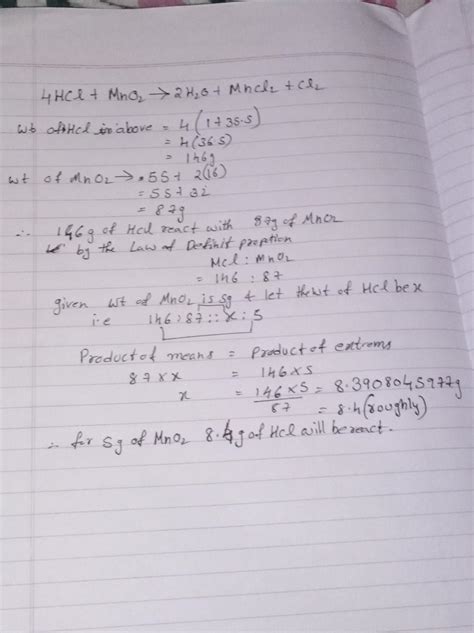 4HCl + MnO2 → 2H2O + MnCl2 + Cl2
wt of HCl in above = 4(1+35.5)
= 4(36.5)
= 146g
wt of MnO2 → 55+ 2(16)
= 55+32
= 87g
∴ 146g of HCl react with 87g of MnO2
by the Law of Definit proption
HCl : MnO2
= 146 : 87
given wt of MnO2 is 5g & let the wt of HCl be x
i.e 146 : 87 :: x : 5
Product of means = Product of extroms
87 × x = 146 × 5
x = 146 × 5 / 87 = 8.3908045977g
= 8.4 (roughly)
∴ for 5g of MnO2 8.4g of HCl will be react.